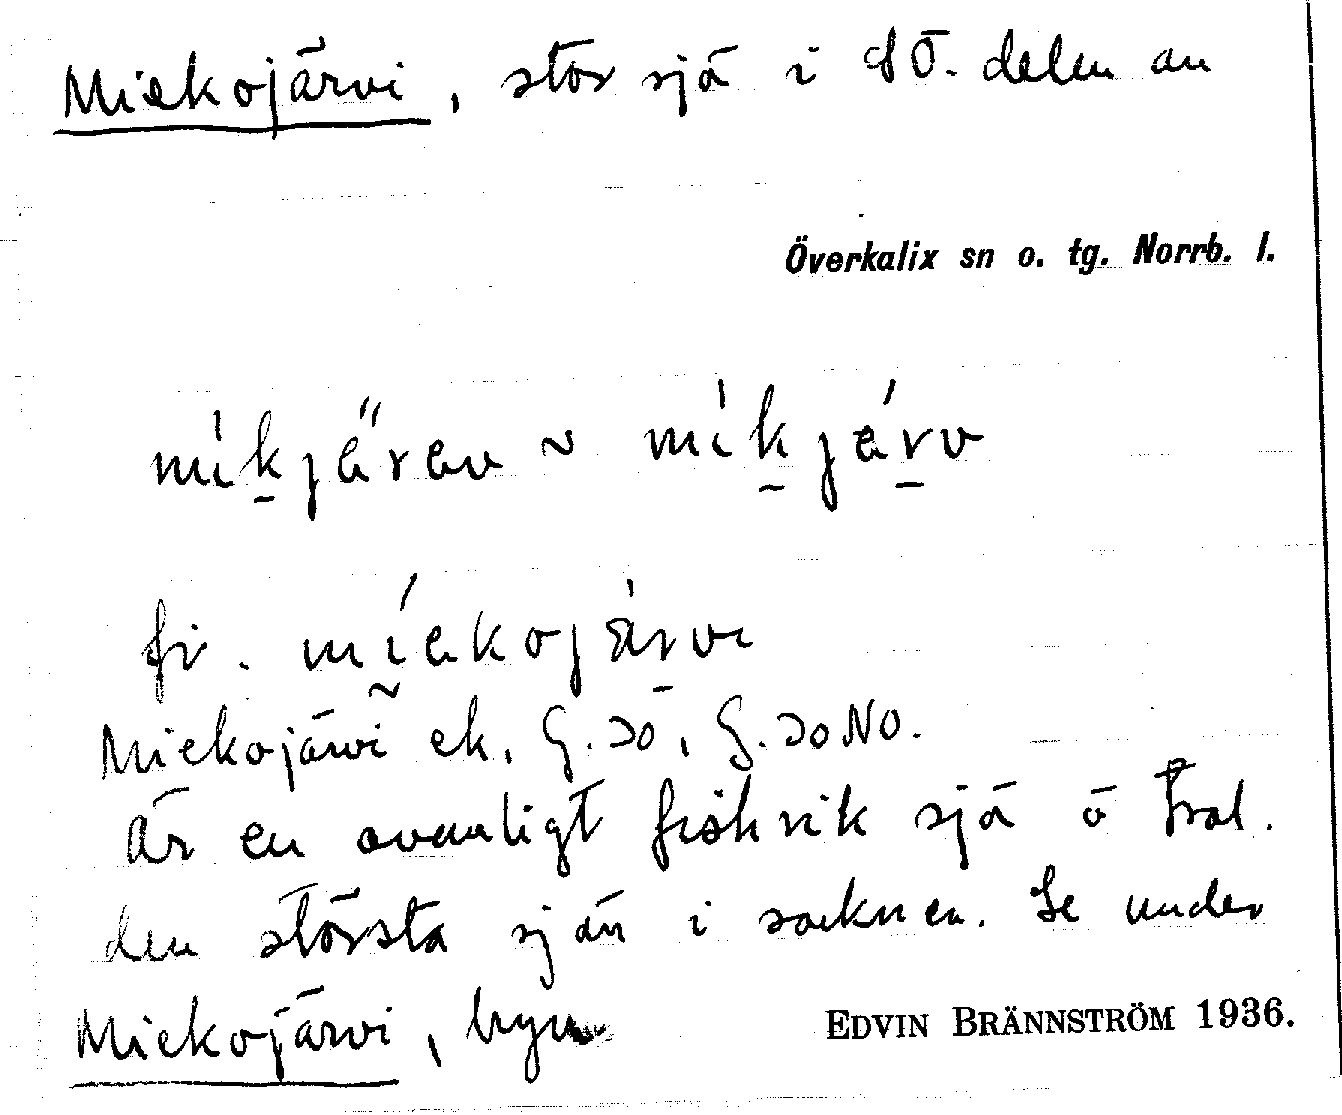 Miekojärvi, stor sjö i SÖ. delen av
Överkalix sn o. tg. Norrb. l.
míkjä̋rav ~ mìkjárv
fi. míekojàrvi
Miekojärvi ek. G. SÖ, G. SONO.
Är en ovanligt fiskrik sjö o
den största sjön i socknen. Se under
Miekojärvi, byn
EDVIN BRÄNNSTRÖM 1936.